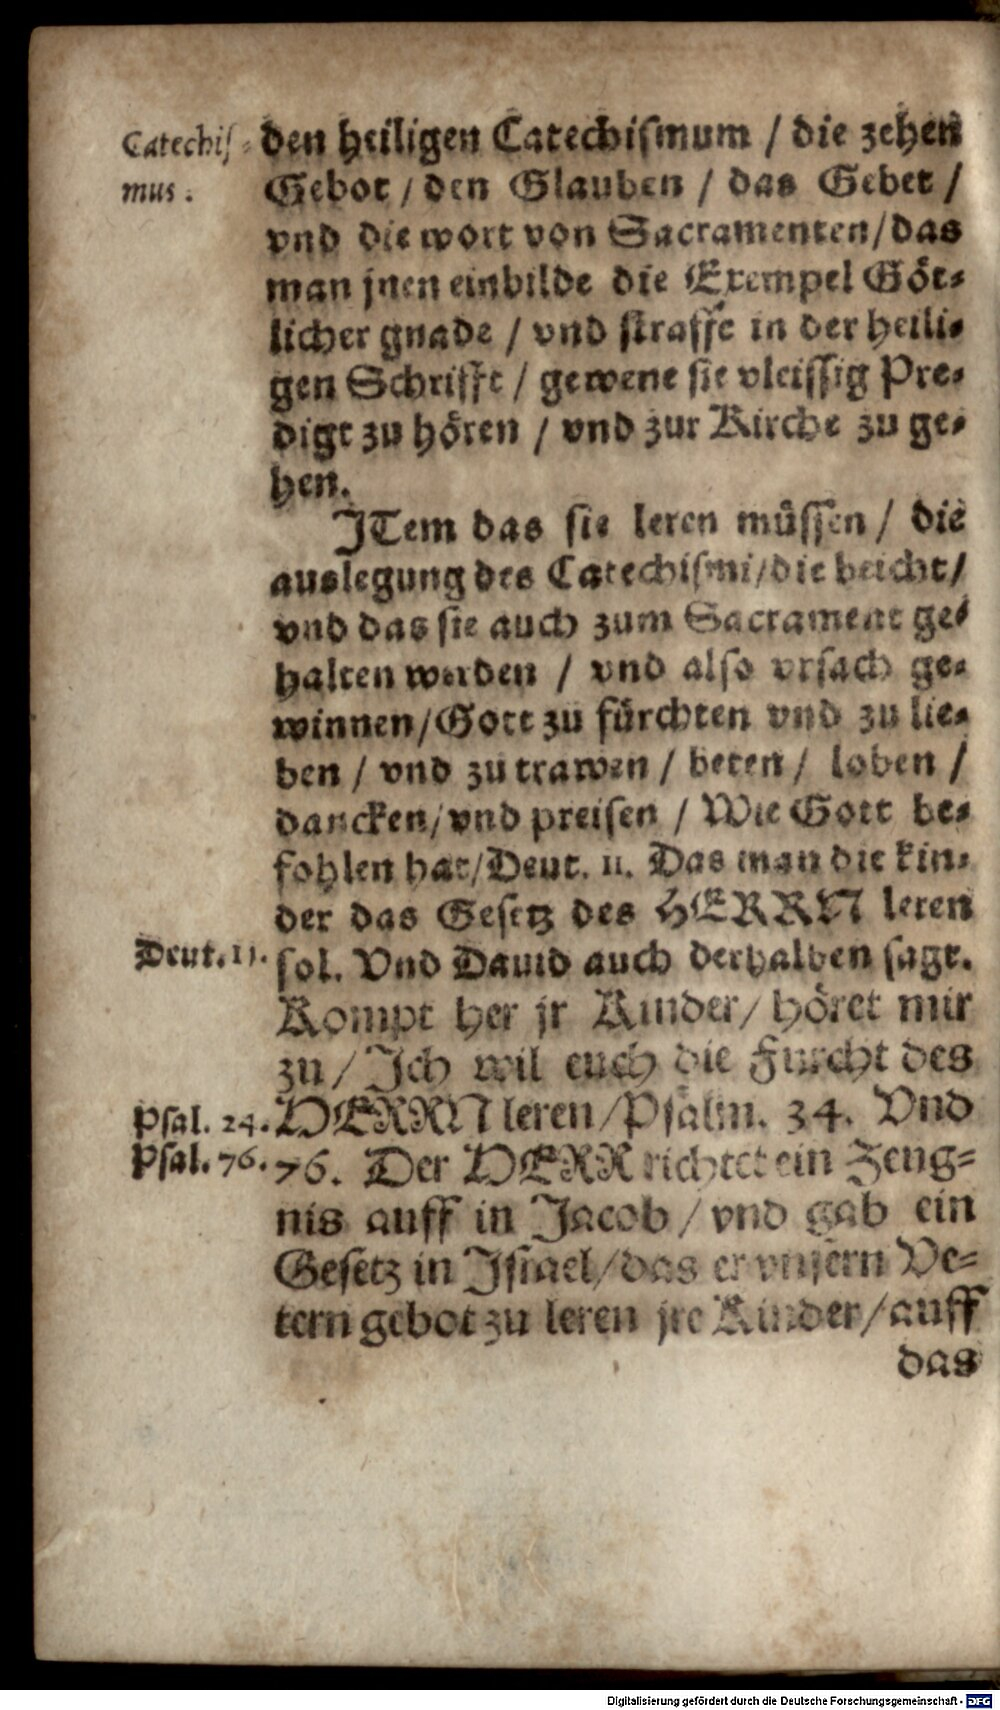 Catechis-
mus.
den heiligen Catechismum / die zehen
Gebot / den Glauben / das Gebet /
vnd die wort von Sacramenten/das
man jnen einbilde die Exempel Göt-
licher gnade / vnd straffe in der heili-
gen Schrifft / gewene sie vleissig Pre-
digt zu hören / vnd zur Kirche zu ge-
hen.
JTem das sie leren müssen / die
auslegung des Catechismi/die beicht/
vnd das sie auch zum Sacrament ge-
halten werden / vnd also vrsach ge-
winnen/Gott zu fürchten vnd zu lie-
ben / vnd zu trawen / beten / loben /
dancken/vnd preisen / Wie Gott be-
fohlen hat/Deut. 11. Das man die kin-
der das Gesetz des HERRN leren
Deut. 11.
sol. Vnd Dauid auch derhalben sagt.
Kompt her jr Kinder/höret mir
zu/Jch wil euch die Furcht des
Psal. 24.
HERRN leren/Psalm. 34. Vnd
Psal. 76.
76. Der HERR richtet ein Zeug-
nis auff in Jacob/vnd gab ein
Gesetz in Jsrael/das er vnsern Ve-
tern gebot zu leren jre Kinder/auff
das
Digitalisierung gefördert durch die Deutsche Forschungsgemeinschaft - DFG